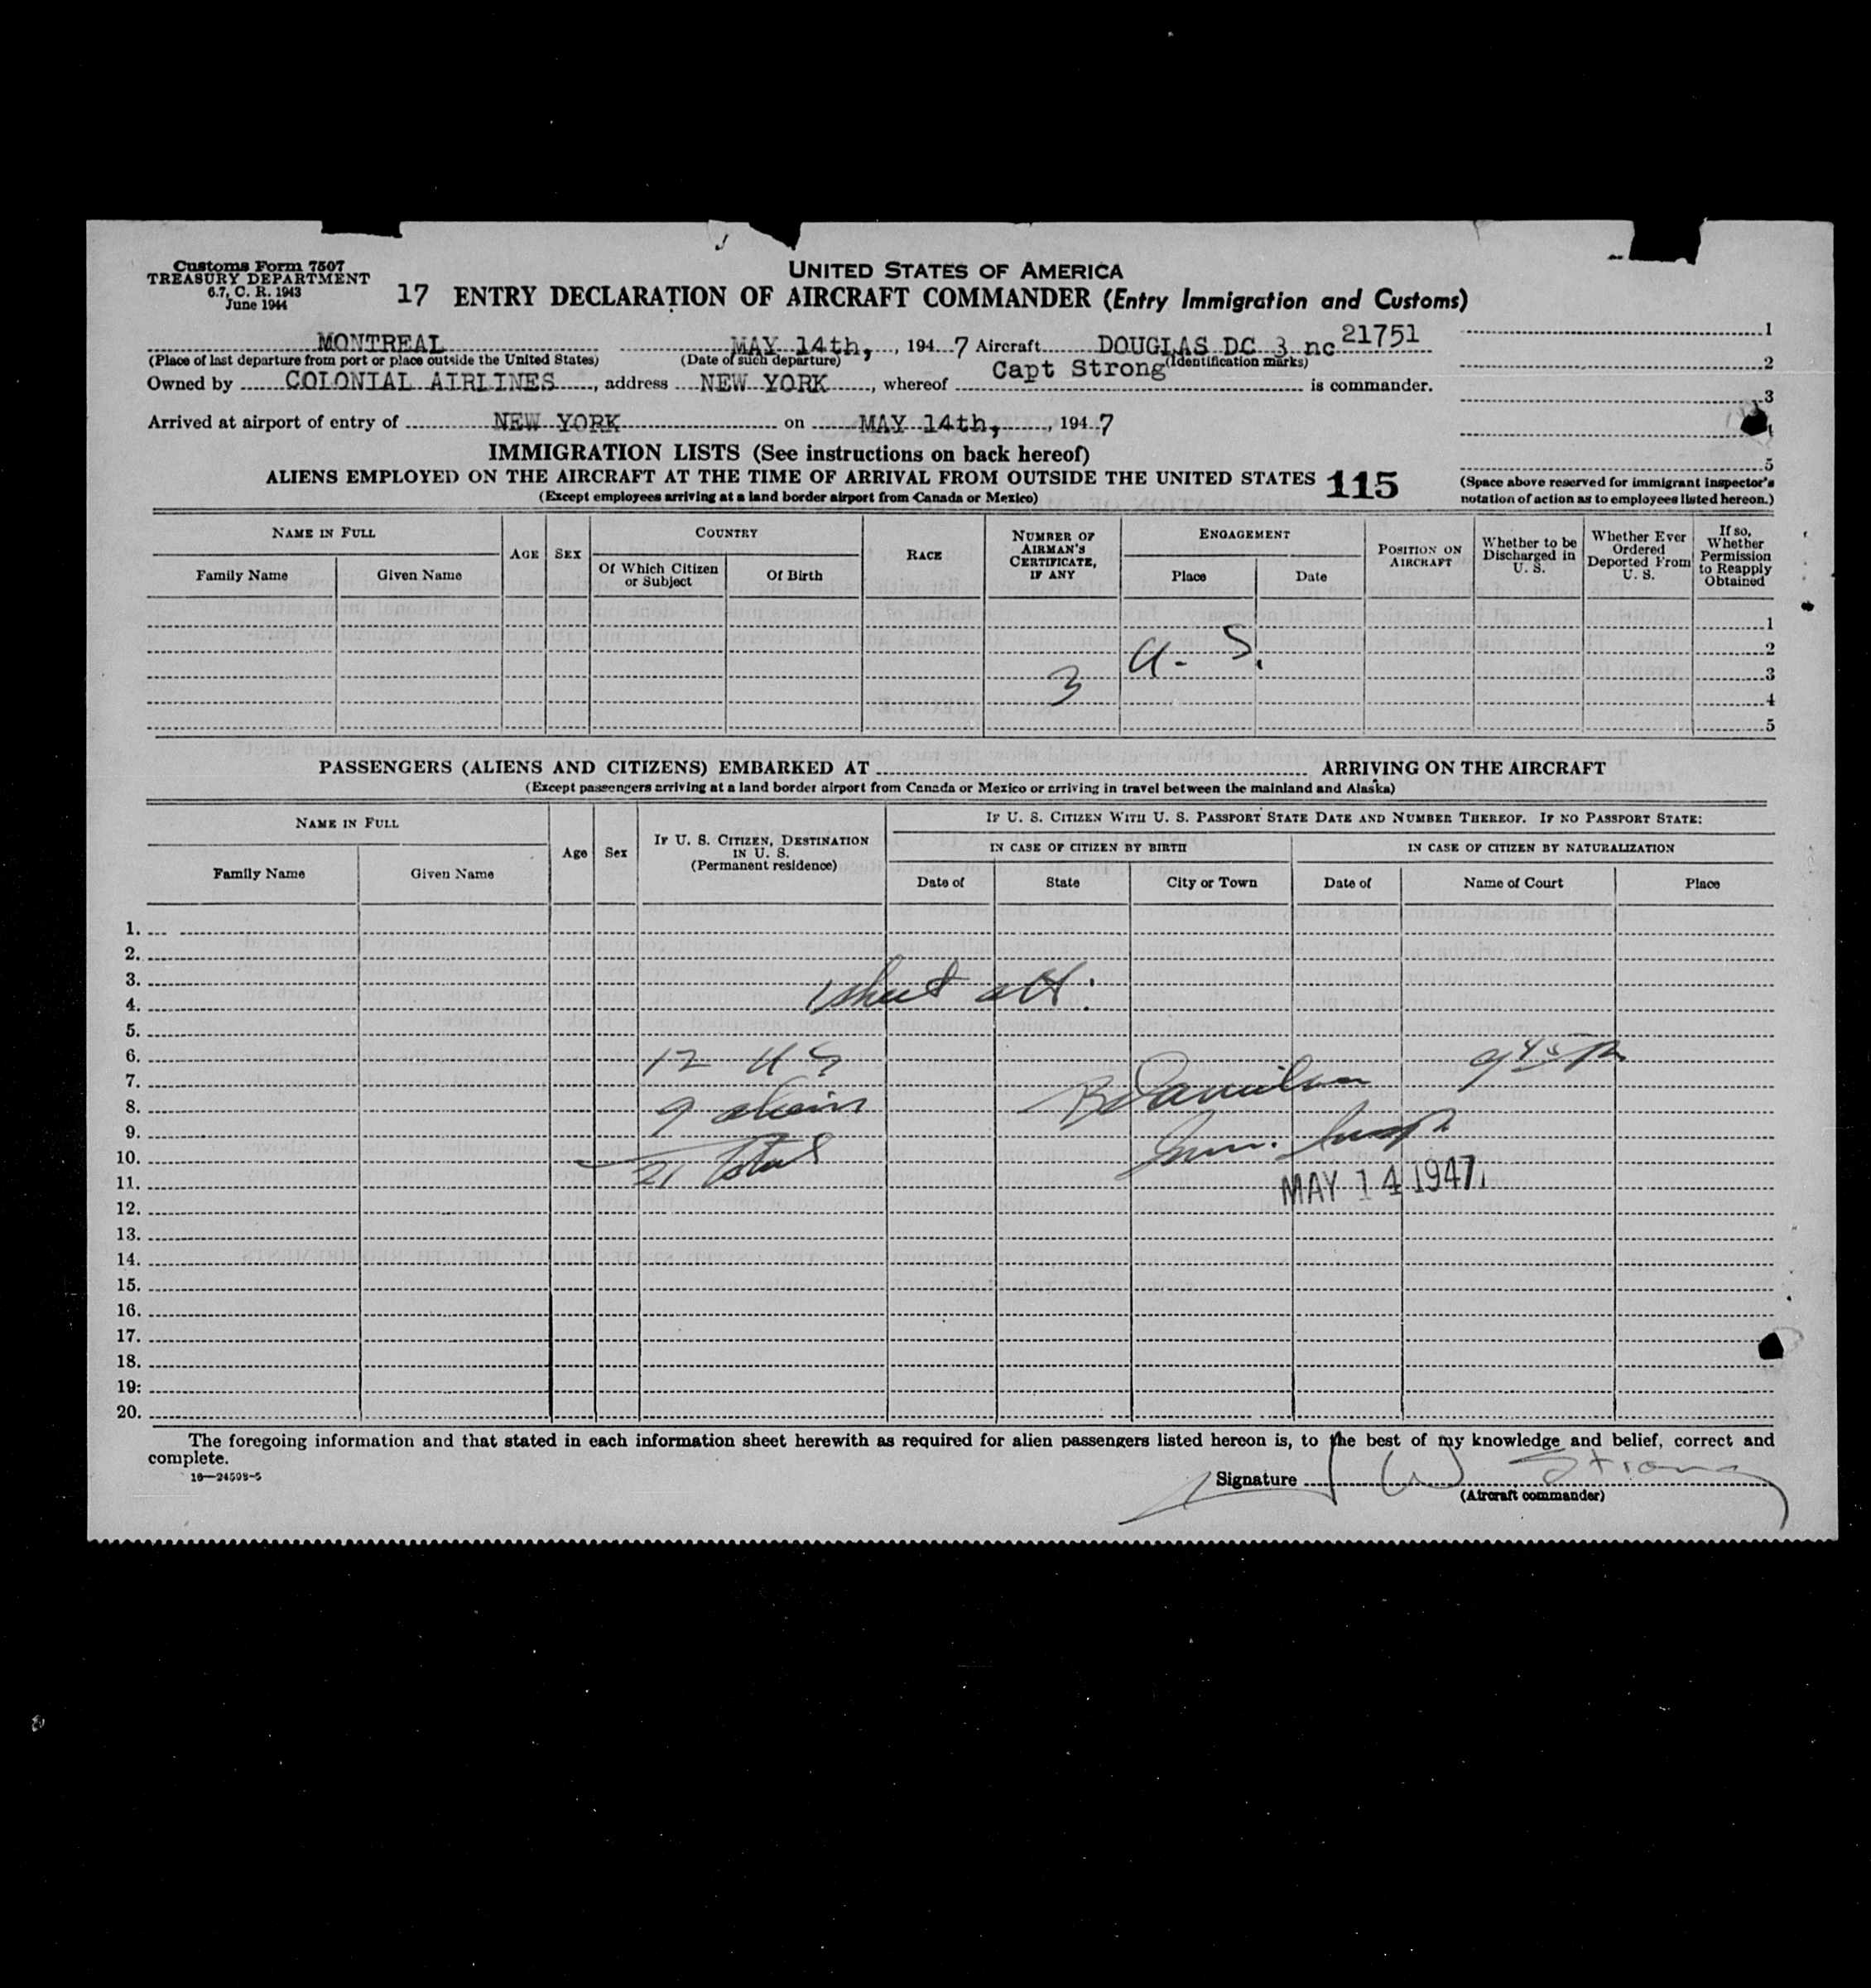 Customs Form 7507
TREASURY DEPARTMENT
6.7, C. R. 1943
June 1944
UNITED STATES OF AMERICA
17 ENTRY DECLARATION OF AIRCRAFT COMMANDER (Entry Immigration and Customs)
MONTREAL MAY 14th, , 1947 Aircraft DOUGLAS DC 3 nc 21751
(Place of last departure from port or place outside the United States) (Date of such departure) (Identification marks)
Owned by COLONIAL AIRLINES, address NEW YORK, whereof Capt Strong is commander.
Arrived at airport of entry of NEW YORK on MAY 14th, , 1947
1
2
3
4
5
(Space above reserved for immigrant inspector's
notation of action as to employees listed hereon.)
IMMIGRATION LISTS (See instructions on back hereof)
ALIENS EMPLOYED ON THE AIRCRAFT AT THE TIME OF ARRIVAL FROM OUTSIDE THE UNITED STATES 115
(Except employees arriving at a land border airport from Canada or Mexico)
NAME IN FULL
Family Name Given Name
AGE SEX
COUNTRY
Of Which Citizen or Subject Of Birth
RACE
NUMBER OF AIRMAN'S CERTIFICATE, IF ANY
ENGAGEMENT
Place Date
POSITION ON AIRCRAFT
Whether to be Discharged in U. S.
Whether Ever Ordered Deported From U. S.
If so, Whether Permission to Reapply Obtained
1
2
3
4
5
3 U. S.
PASSENGERS (ALIENS AND CITIZENS) EMBARKED AT ARRIVING ON THE AIRCRAFT
(Except passengers arriving at a land border airport from Canada or Mexico or arriving in travel between the mainland and Alaska)
NAME IN FULL
Family Name Given Name
Age Sex
IF U. S. CITIZEN, DESTINATION IN U. S.
(Permanent residence)
IF U. S. CITIZEN WITH U. S. PASSPORT STATE DATE AND NUMBER THEREOF. IF NO PASSPORT STATE:
IN CASE OF CITIZEN BY BIRTH IN CASE OF CITIZEN BY NATURALIZATION
Date of State City or Town Date of Name of Court Place
1.
2.
3.
4.
1 sheet att:
5.
6. 12 US
7.
8. 9 alien
9.
10. 21 Total
Imm. Insp.
11. MAY 14 1947
12.
13.
14.
15.
16.
17.
18.
19.
20.
The foregoing information and that stated in each information sheet herewith as required for alien passengers listed hereon is, to the best of my knowledge and belief, correct and
complete.
16—24598-5
Signature J W Strong
(Aircraft commander)